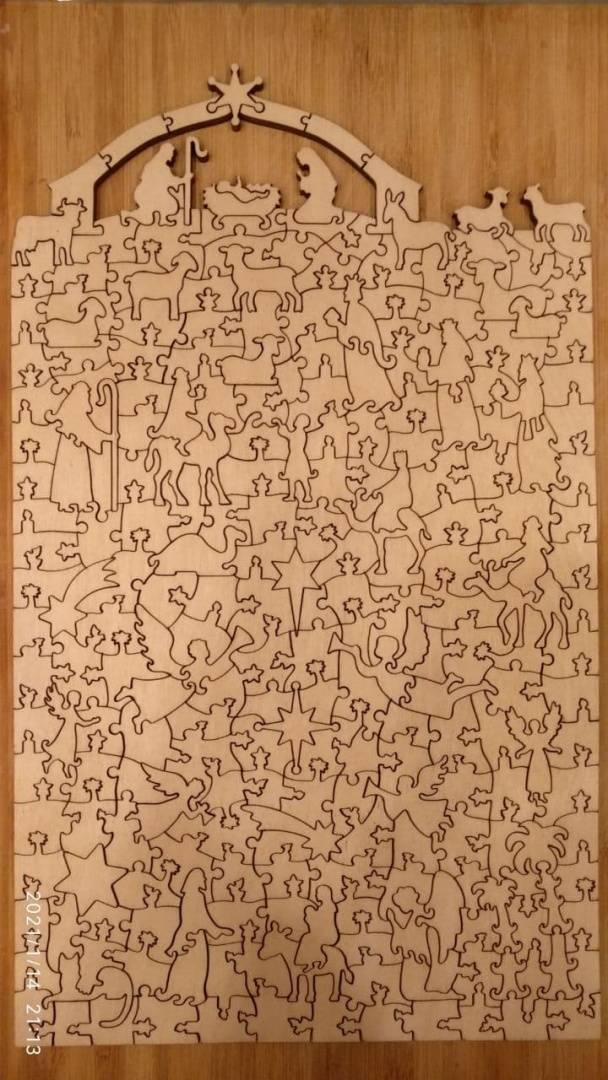 2021/1/14 21:13